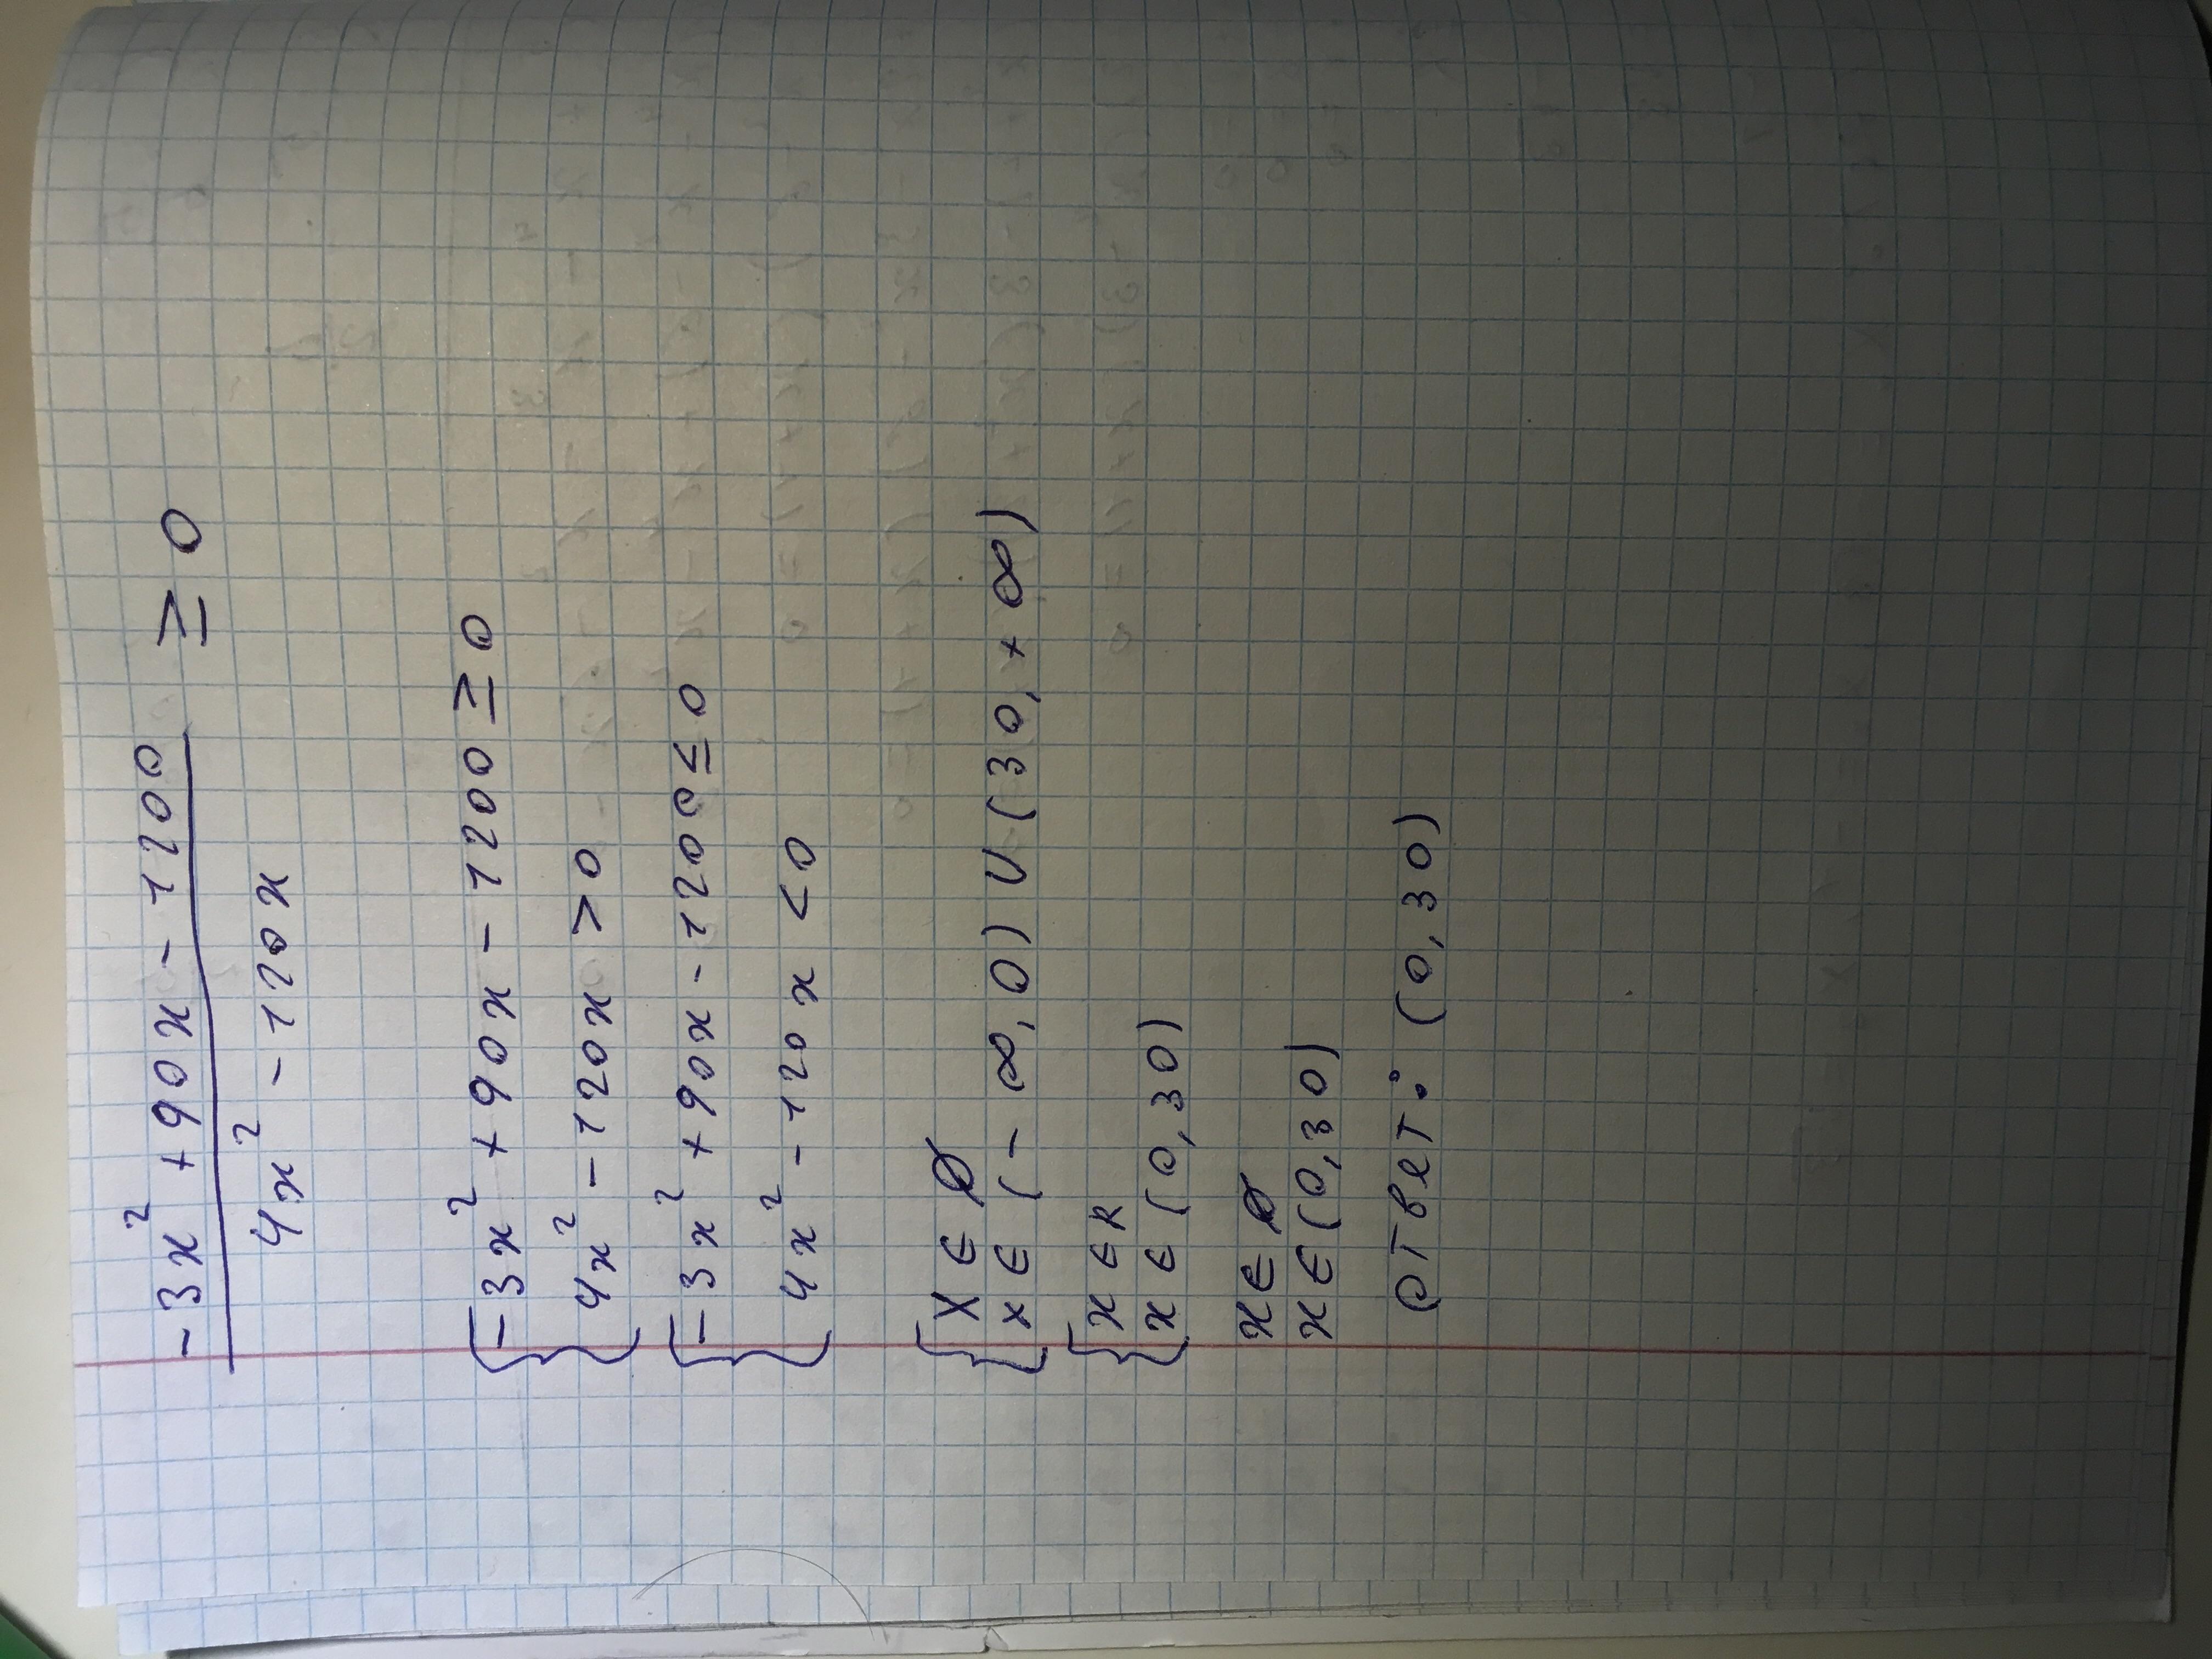 -3x² + 90x - 1200
≥ 0
4x² - 120x
{ -3x² + 90x - 1200 ≥ 0
4x² - 120x > 0
{ -3x² + 90x - 1200 ≤ 0
4x² - 120x < 0
{ x ∈ ∅
x ∈ (-∞, 0) ∪ (30, +∞)
{ x ∈ R
x ∈ (0, 30)
x ∈ ∅
x ∈ (0, 30)
Ответ: (0, 30)